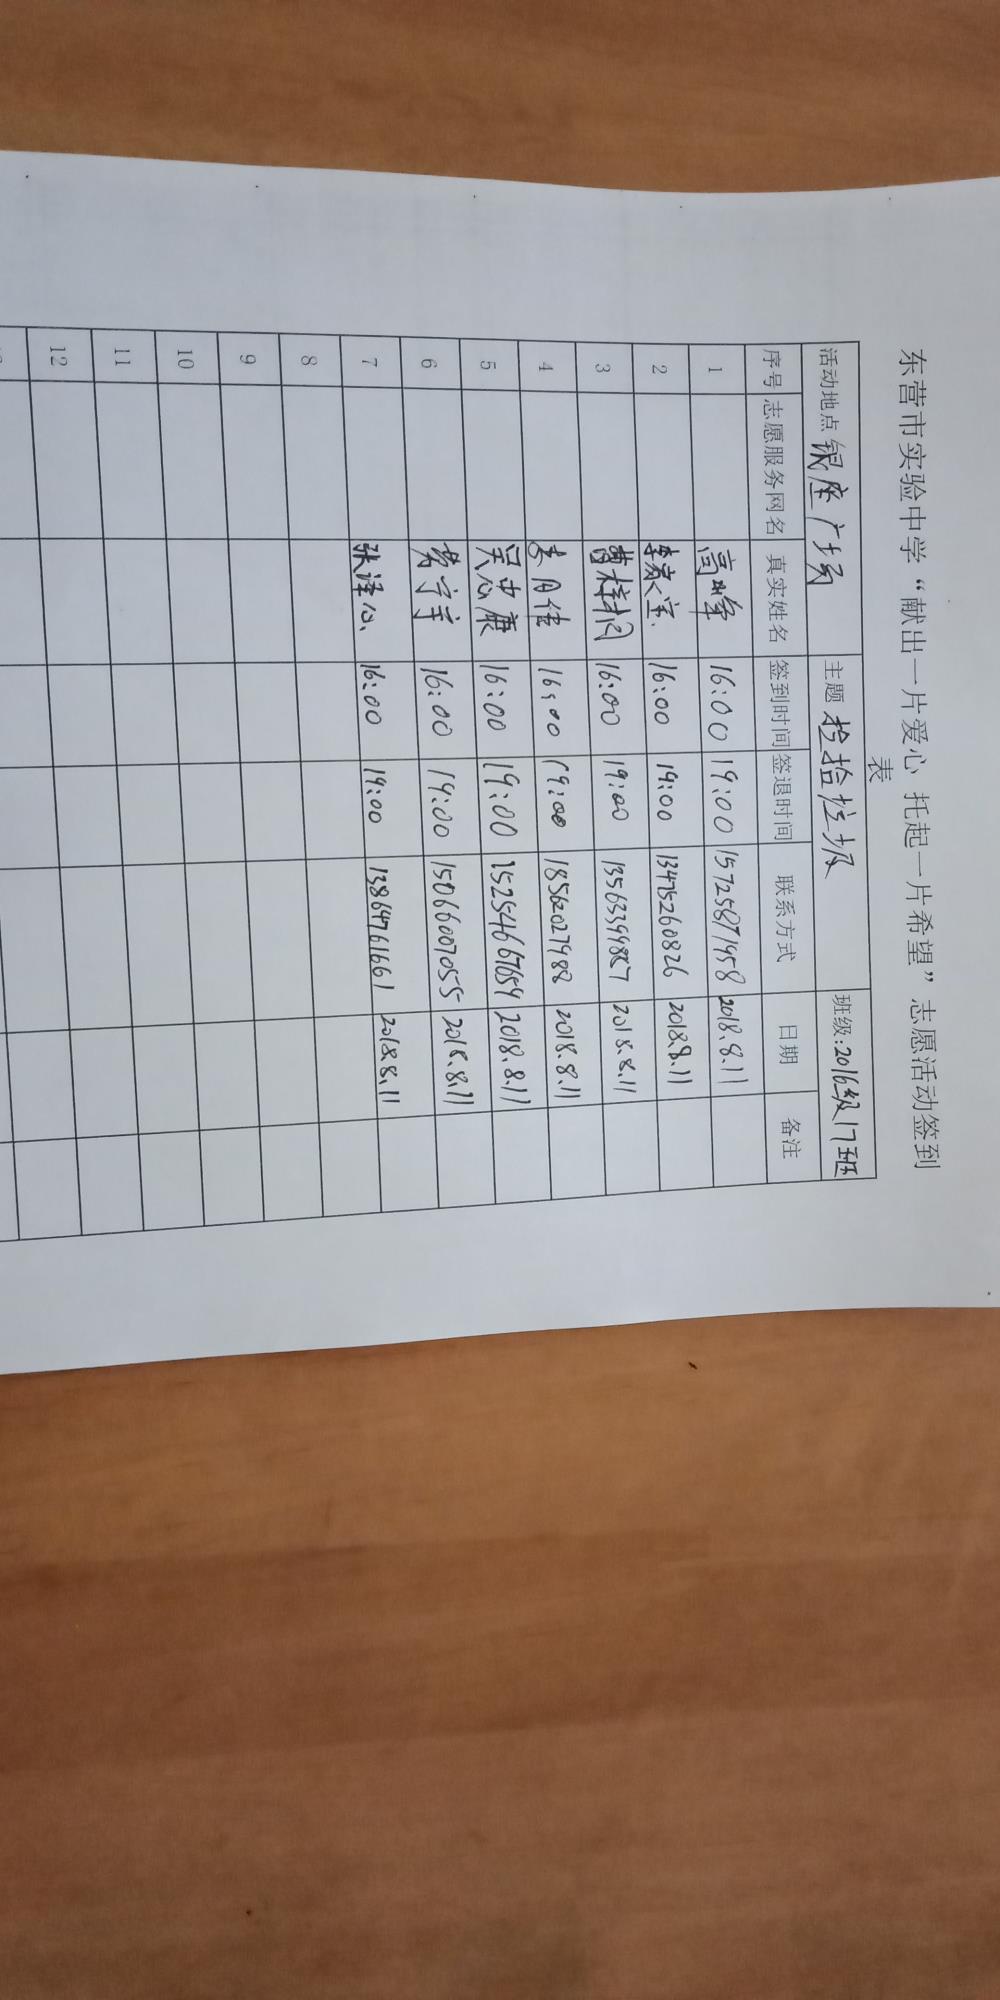 东营市实验中学“献出一片爱心 托起一片希望”志愿活动签到
表
活动地点 银座广场 主题 捡拾垃圾 班级:2016级17班
序号 志愿服务网名 真实姓名 签到时间 签退时间 联系方式 日期 备注
1 16:00 19:00 15725871958 2018.8.11
2 16:00 19:00 13475260826 2018.8.11
3 16:00 19:00 2018.8.11
4 16:00 19:00 18562027988 2018.8.11
5 吴忠康 16:00 19:00 15254667659 2018.8.11
6 16:00 19:00 15066007055 2018.8.11
7 张泽心 16:00 19:00 13864761661 2018.8.11
8
9
10
11
12